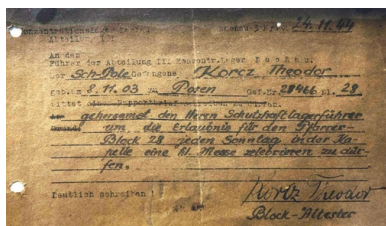 Konzentrationslager Dachau
Abteilung III
Dachau 3 K, 24.11.44
An den
Führer der Abteilung III Konzentr.Lager Dachau:
Der Sch-Pole Gefangene Korcz Theodor
geb.am 8.11.03 zu Posen Gef.Nr. 28466 Bl. 28
bittet
gehorsamst den Herrn Schutzhaftlagerführer
um die Erlaubnis für den Pfarrer-
Block 28 jeden Sonntag in der Ka-
pelle eine hl. Messe zelebrieren zu dür-
fen.
Deutlich schreiben!
Korcz Theodor
Block-Ältester